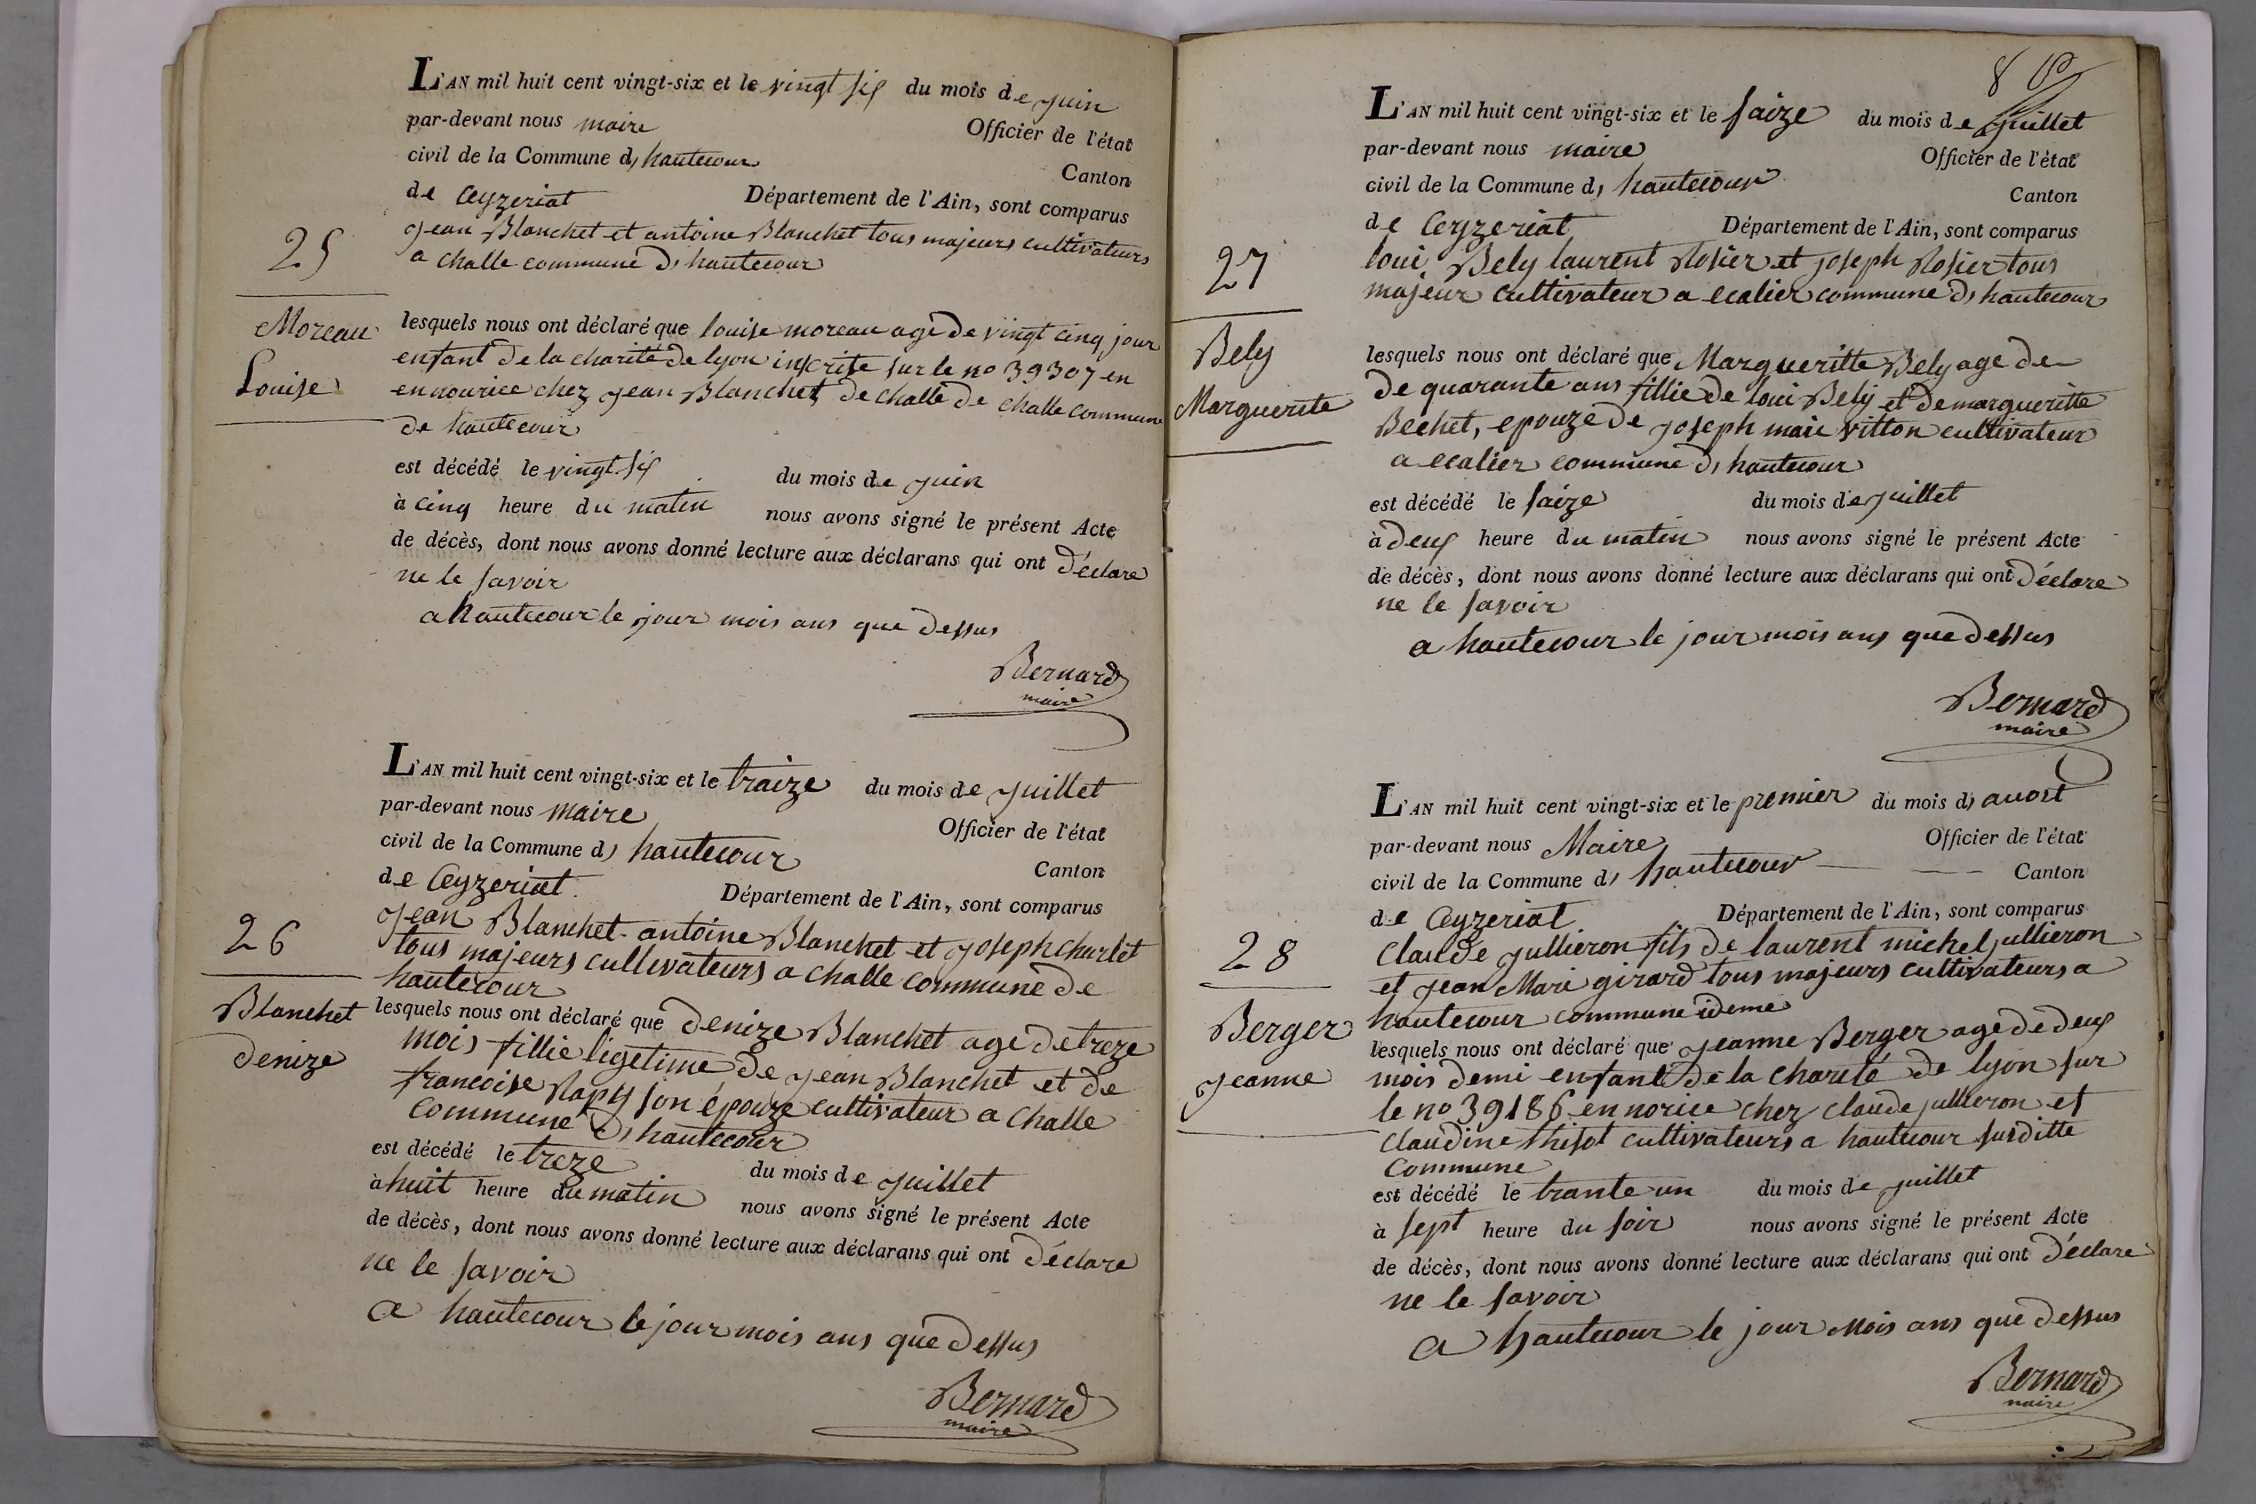 L'AN mil huit cent vingt-six et le vingt six du mois de juin
par-devant nous maire Officier de l'état
civil de la Commune d, hautecour Canton
de Ceyzeriat Département de l'Ain, sont comparus
jean Blanchet et antoine Blanchet tous majeurs cultivateurs
a challe commune d, hautecour
25
Moreau
Louise
lesquels nous ont déclaré que louise moreau age de vingt cinq jour
enfant de la charité de lyon inscrite sur le no 39307 en
en nourice chez jean Blanchet de challe de challe commune
de hautecour
est décédé le vingt six du mois de juin
à cinq heure du matin nous avons signé le présent Acte
de décès, dont nous avons donné lecture aux déclarans qui ont déclare
ne le savoir
a hautecour le jour mois ans que dessus
Bernard
maire
L'AN mil huit cent vingt-six et le traize du mois de juillet
par-devant nous maire Officier de l'état
civil de la Commune d, hautecour Canton
de Ceyzeriat Département de l'Ain, sont comparus
26
Blanchet
denize
jean Blanchet antoine Blanchet et joseph charlet
tous majeurs cultivateurs a challe commune de
hautecour
lesquels nous ont déclaré que denize Blanchet age de treze
mois fillie ligetime de jean Blanchet et de
francoise Rapy son épouze cultivateur a challe
commune d, hautecour
est décédé le treze du mois de juillet
à huit heure du matin nous avons signé le présent Acte
de décès, dont nous avons donné lecture aux déclarans qui ont déclare
ne le savoir
a hautecour le jour mois ans que dessus
Bernard
maire
8
L'AN mil huit cent vingt-six et le saize du mois de juillet
par-devant nous maire Officier de l'état
civil de la Commune d, hautecour Canton
de Ceyzeriat Département de l'Ain, sont comparus
27
Bely
Marguerite
loui Bely laurent Rosier et joseph Rosier tous
majeur cultivateur a ecalier commune d, hautecour
lesquels nous ont déclaré que Margueritte Bely age de
de quarante ans fillie de loui Bely et de margueritte
Bechet, epouze de joseph marie vitton cultivateur
a ecalier commune d, hautecour
est décédé le saize du mois de juillet
à deux heure du matin nous avons signé le présent Acte
de décès, dont nous avons donné lecture aux déclarans qui ont déclare
ne le savoir
a hautecour le jour mois ans que dessus
Bernard
maire
L'AN mil huit cent vingt-six et le premier du mois d, auost
par-devant nous Maire Officier de l'état
civil de la Commune d, hautecour Canton
de Ceyzeriat Département de l'Ain, sont comparus
28
Berger
jeanne
Claude jullieron fils de laurent michel jullieron
et jean Marie girard tous majeurs cultivateurs a
hautecour commune ideme
lesquels nous ont déclaré que jeanne Berger age de deux
mois demi enfant de la charité de lyon sur
le no 39186 en norice chez claude jullieron et
claudine thisot cultivateurs a hautecour susditte
commune
est décédé le trante un du mois de juillet
à sept heure du soir nous avons signé le présent Acte
de décès, dont nous avons donné lecture aux déclarans qui ont déclare
ne le savoir
a hautecour le jour mois ans que dessus
Bernard
maire